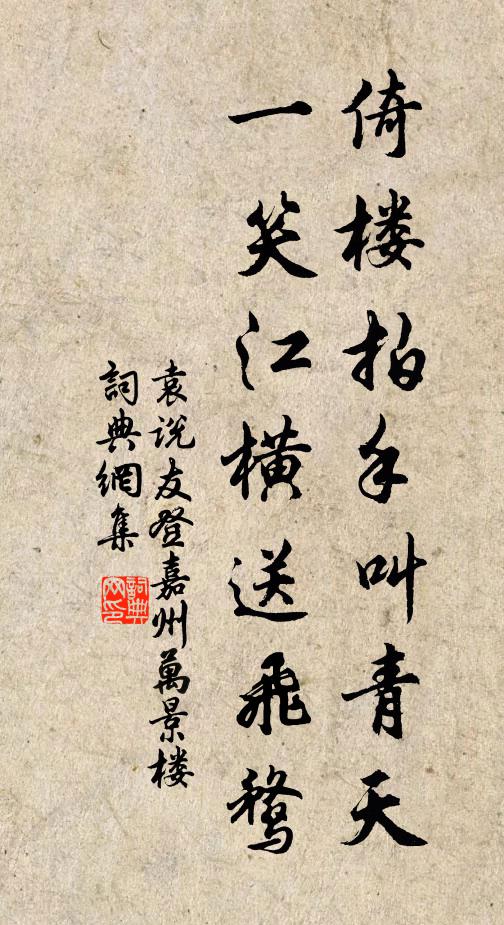 倚楼拍手叫青天
一笑江横送飛鶩
袁说友登嘉州萬景楼
詞典網集
詞典网印